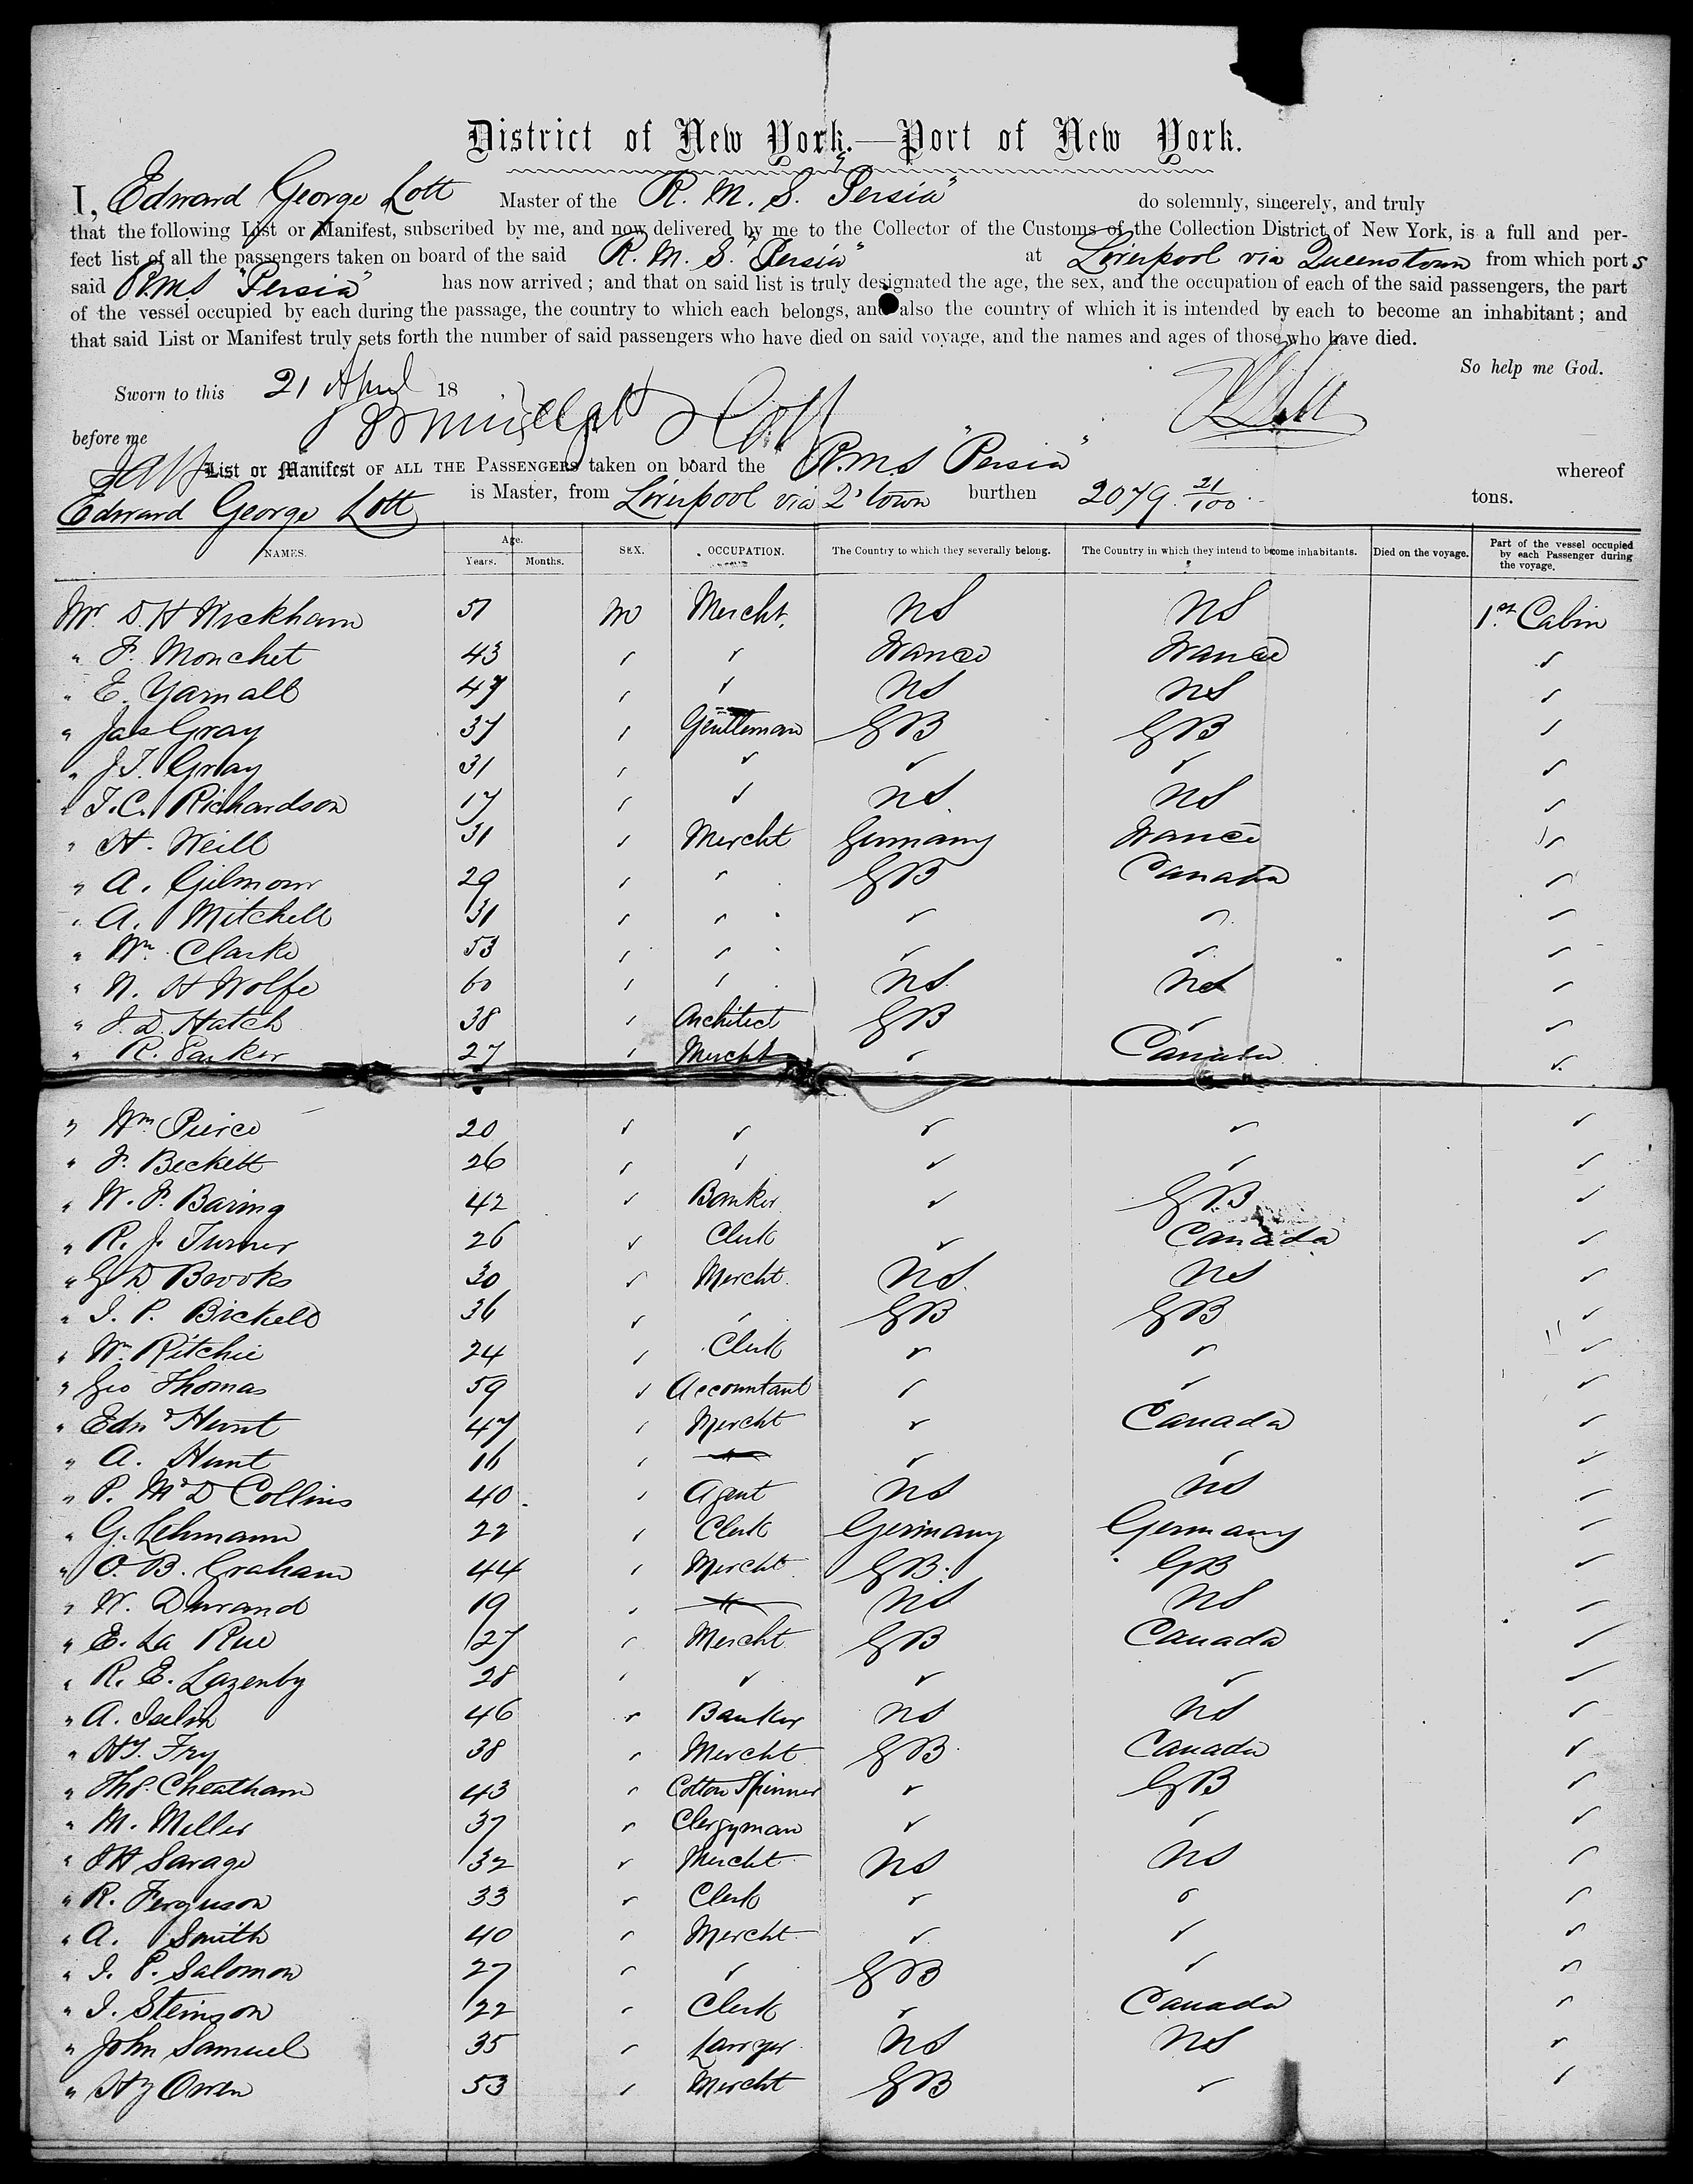 District of New York.—Port of New York.
I, Edward George Lott Master of the R. M. S. "Persia" do solemnly, sincerely, and truly
that the following List or Manifest, subscribed by me, and now delivered by me to the Collector of the Customs of the Collection District of New York, is a full and per-
fect list of all the passengers taken on board of the said R. M. S. "Persia" at Liverpool via Queenstown from which ports
said R.M.S "Persia" has now arrived; and that on said list is truly designated the age, the sex, and the occupation of each of the said passengers, the part
of the vessel occupied by each during the passage, the country to which each belongs, and also the country of which it is intended by each to become an inhabitant; and
that said List or Manifest truly sets forth the number of said passengers who have died on said voyage, and the names and ages of those who have died.
So help me God.
Sworn to this 21 April 18
before me
List or Manifest OF ALL THE PASSENGERS taken on board the R.M.S "Persia" whereof
Edward George Lott is Master, from Liverpool via Q'town burthen 2079 21/100 tons.
NAMES. Age. Years. Months. SEX. OCCUPATION. The Country to which they severally belong. The Country in which they intend to become inhabitants. Died on the voyage. Part of the vessel occupied by each Passenger during the voyage.
Mr D. H Wickham 51 M Mercht. US US 1st Cabin
" F. Monchet 43 " " France France "
" E. Yarnall 47 " " US US "
" Jas Gray 37 " Gentleman GB GB "
" J.T. Gray 31 " " " " "
" T.C. Richardson 17 " " US US "
" H. Weill 31 " Mercht Germany France "
" A. Gilmour 29 " " GB Canada "
" A. Mitchell 31 " " " " "
" Wm Clarke 53 " " " " "
" N. H Wolfe 60 " " US US "
" J. D. Hatch 38 " Architect GB " "
" R. Parker 27 " Mercht " Canada "
" Wm Pierce 20 " " " " "
" J. Beckett 26 " " " " "
" W. F. Baring 42 " Banker " GB "
" R. J. Turner 26 " Clerk " Canada "
" G D Brooks 30 " Mercht US US "
" J. P. Bickell 36 " " GB GB "
" Wm Ritchie 24 " Clerk " " "
" Geo Thomas 59 " Accountant " " "
" Edn Hunt 47 " Mercht " Canada "
" A. Hunt 16 " " " "
" P. McD Collins 40 " Agent US US "
" G. Lehmann 22 " Clerk Germany Germany "
" O. B. Graham 44 " Mercht GB GB "
" W. Durand 19 " US US "
" E. La Rue 27 " Mercht GB Canada "
" R. E. Lazenby 28 " " " " "
" A. Iselin 46 " Banker US US "
" Hy. Fry 38 " Mercht GB Canada "
" Thos. Cheatham 43 " Cotton Spinner " GB "
" M. Miller 37 " Clergyman " " "
" J H Savage 32 " Mercht US US "
" R. Ferguson 33 " Clerk " " "
" A. Smith 40 " Mercht " " "
" J. P. Salomon 27 " " GB " "
" J. Steinson 22 " Clerk " Canada "
" John Samuel 35 " Lawyer US US "
" Hy Owen 53 " Mercht GB " "